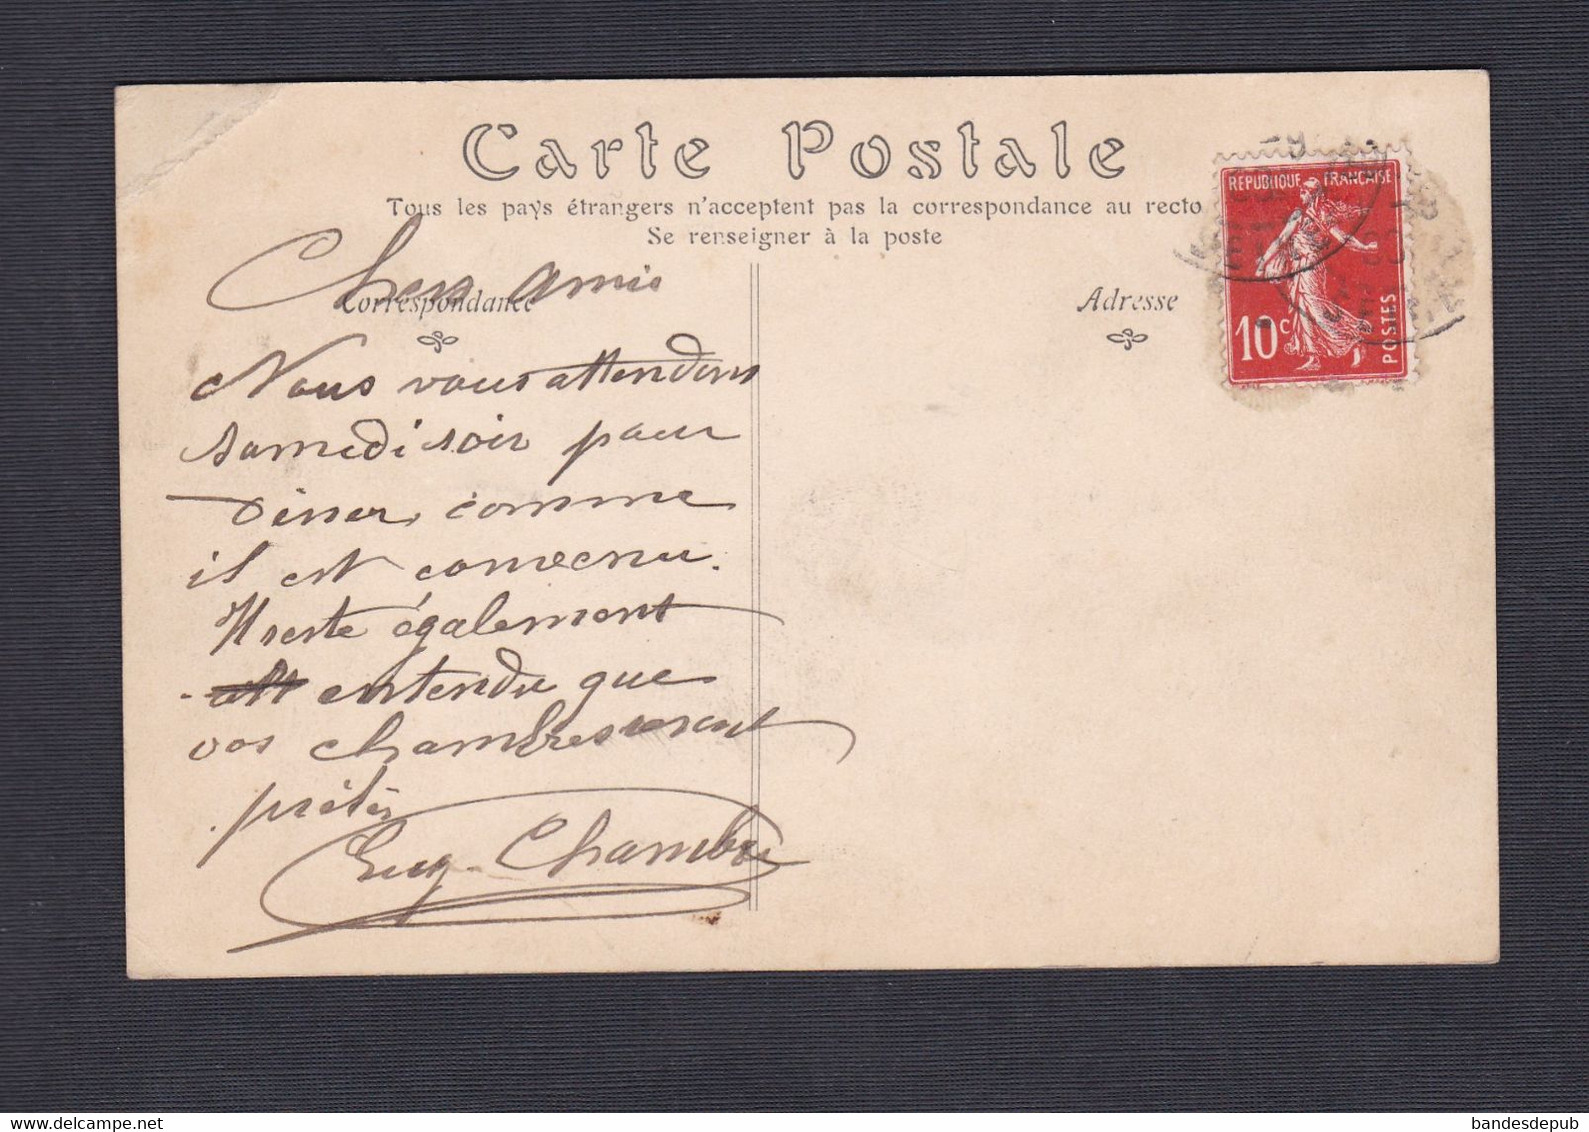 Carte Postale
Tous les pays étrangers n'acceptent pas la correspondance au recto
Se renseigner à la poste
Correspondance
Adresse
REPUBLIQUE FRANÇAISE
10c
POSTES
Chers amis
Nous vous attendons
samedi soir pour
diner, comme
il est convenu.
Il reste également
entendu que
vos chambres seront
prêtes
Eug. Chambre
bandesdepub